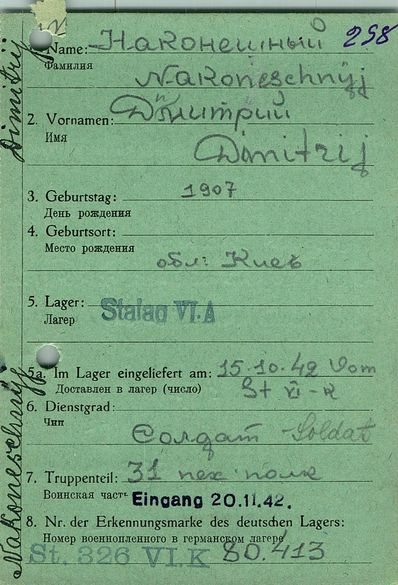 298
Name: Наконешный
Фамилия
Nakoneschnyj
2. Vornamen: Дмитрий
Имя
Dimitrij
3. Geburtstag: 1907
День рождения
4. Geburtsort:
Место рождения
обл: Киев
5. Lager: Stalag VI.A
Лагер
5a. Im Lager eingeliefert am: 15.10.42 Vom
Доставлен в лагер (число) St VI-K
6. Dienstgrad:
Чин
Солдат Soldat
7. Truppenteil: 31 пех полк
Воинская часть Eingang 20.11.42.
8. Nr. der Erkennungsmarke des deutschen Lagers:
Номер военнопленного в германском лагере
St. 326 VI.K 80.413
Nakoneschnyj Dimitrij